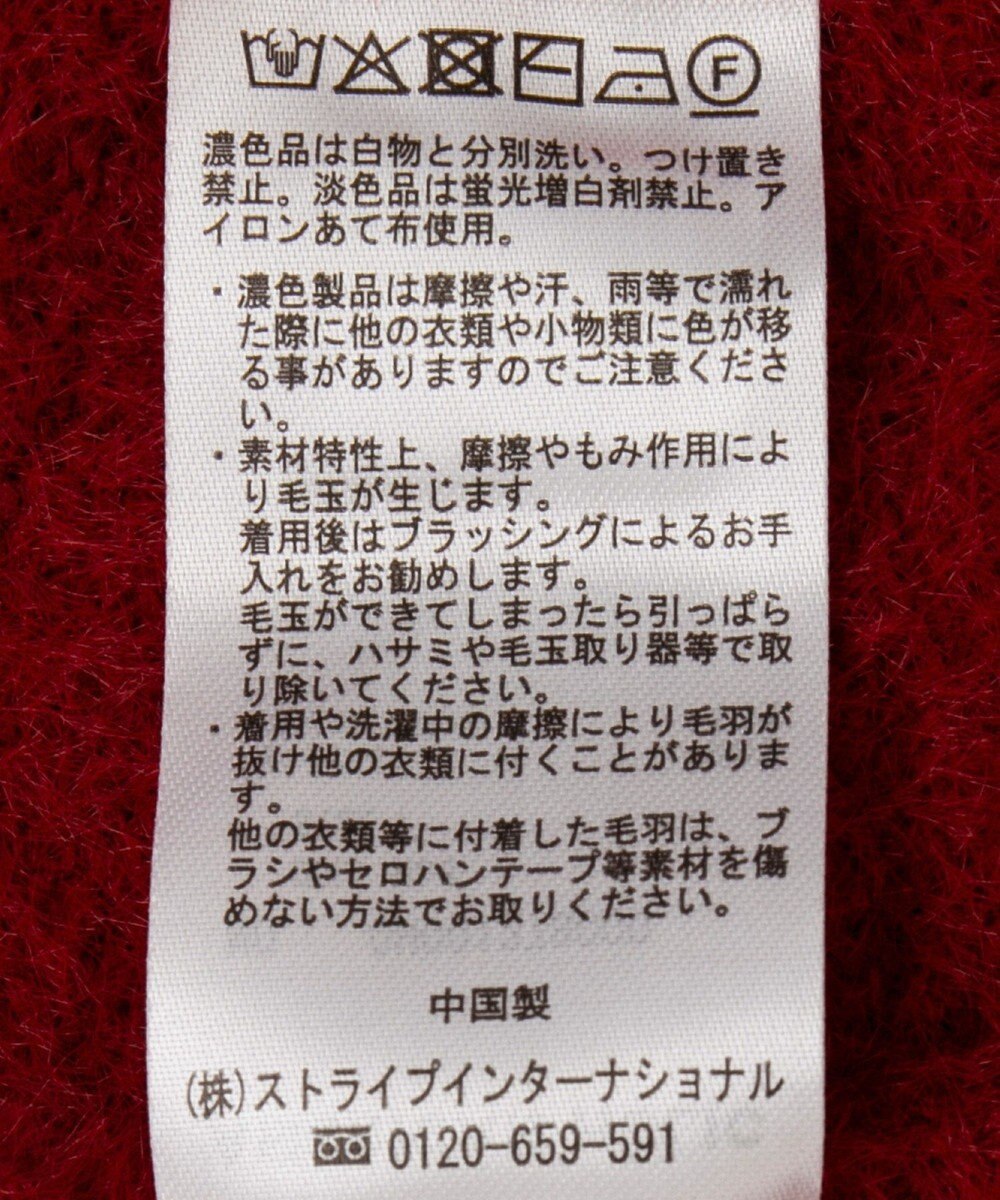 F
濃色品は白物と分別洗い。つけ置き
禁止。淡色品は蛍光増白剤禁止。ア
イロンあて布使用。
・濃色製品は摩擦や汗、雨等で濡れ
た際に他の衣類や小物類に色が移
る事がありますのでご注意くださ
い。
・素材特性上、摩擦やもみ作用によ
り毛玉が生じます。
着用後はブラッシングによるお手
入れをお勧めします。
毛玉ができてしまったら引っぱら
ずに、ハサミや毛玉取り器等で取
り除いてください。
・着用や洗濯中の摩擦により毛羽が
抜け他の衣類に付くことがありま
す。
他の衣類等に付着した毛羽は、ブ
ラシやセロハンテープ等素材を傷
めない方法でお取りください。
中国製
(株)ストライプインターナショナル
0120-659-591